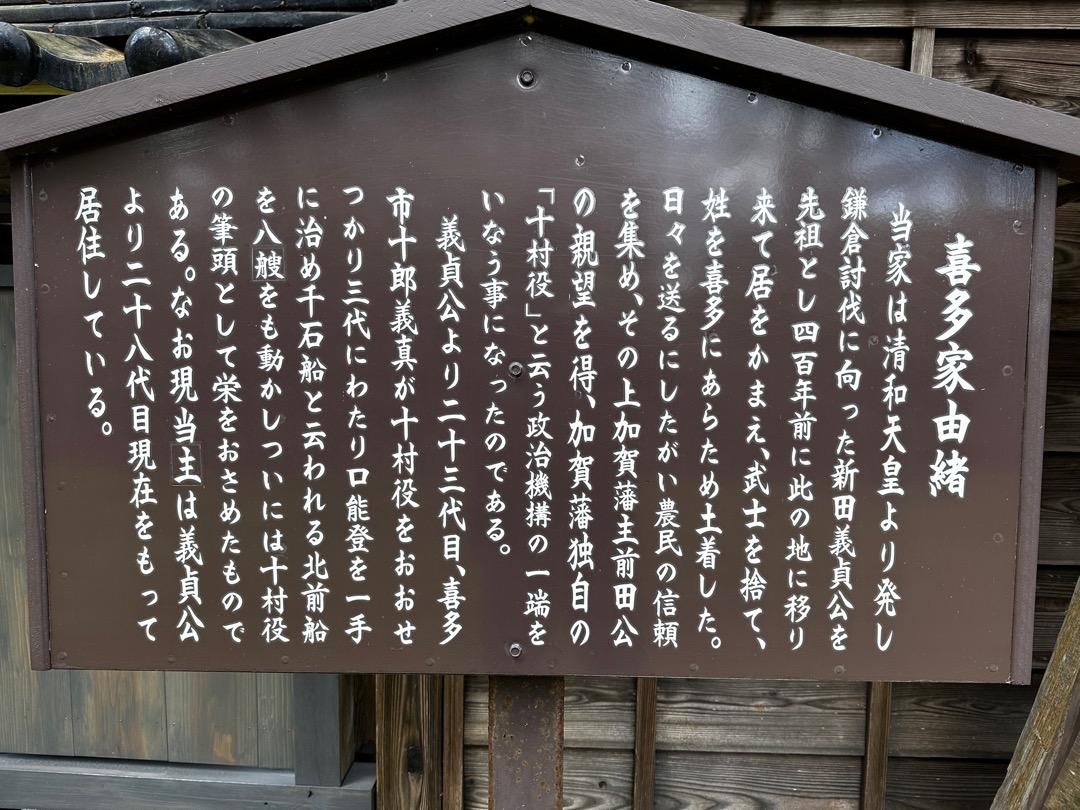 喜多家由緒
当家は清和天皇より発し
鎌倉討伐に向った新田義貞公を
先祖とし四百年前に此の地に移り
来て居をかまえ、武士を捨て、
姓を喜多にあらため土着した。
日々を送るにしたがい農民の信頼
を集め、その上加賀藩主前田公
の親望を得、加賀藩独自の
「十村役」と云う政治機構の一端を
いなう事になったのである。
義貞公より二十三代目、喜多
市十郎義真が十村役をおおせ
つかり三代にわたり口能登を一手
に治め千石船と云われる北前船
を八艘をも動かしついには十村役
の筆頭として栄をおさめたもので
ある。なお現当主は義貞公
より二十八代目現在をもって
居住している。